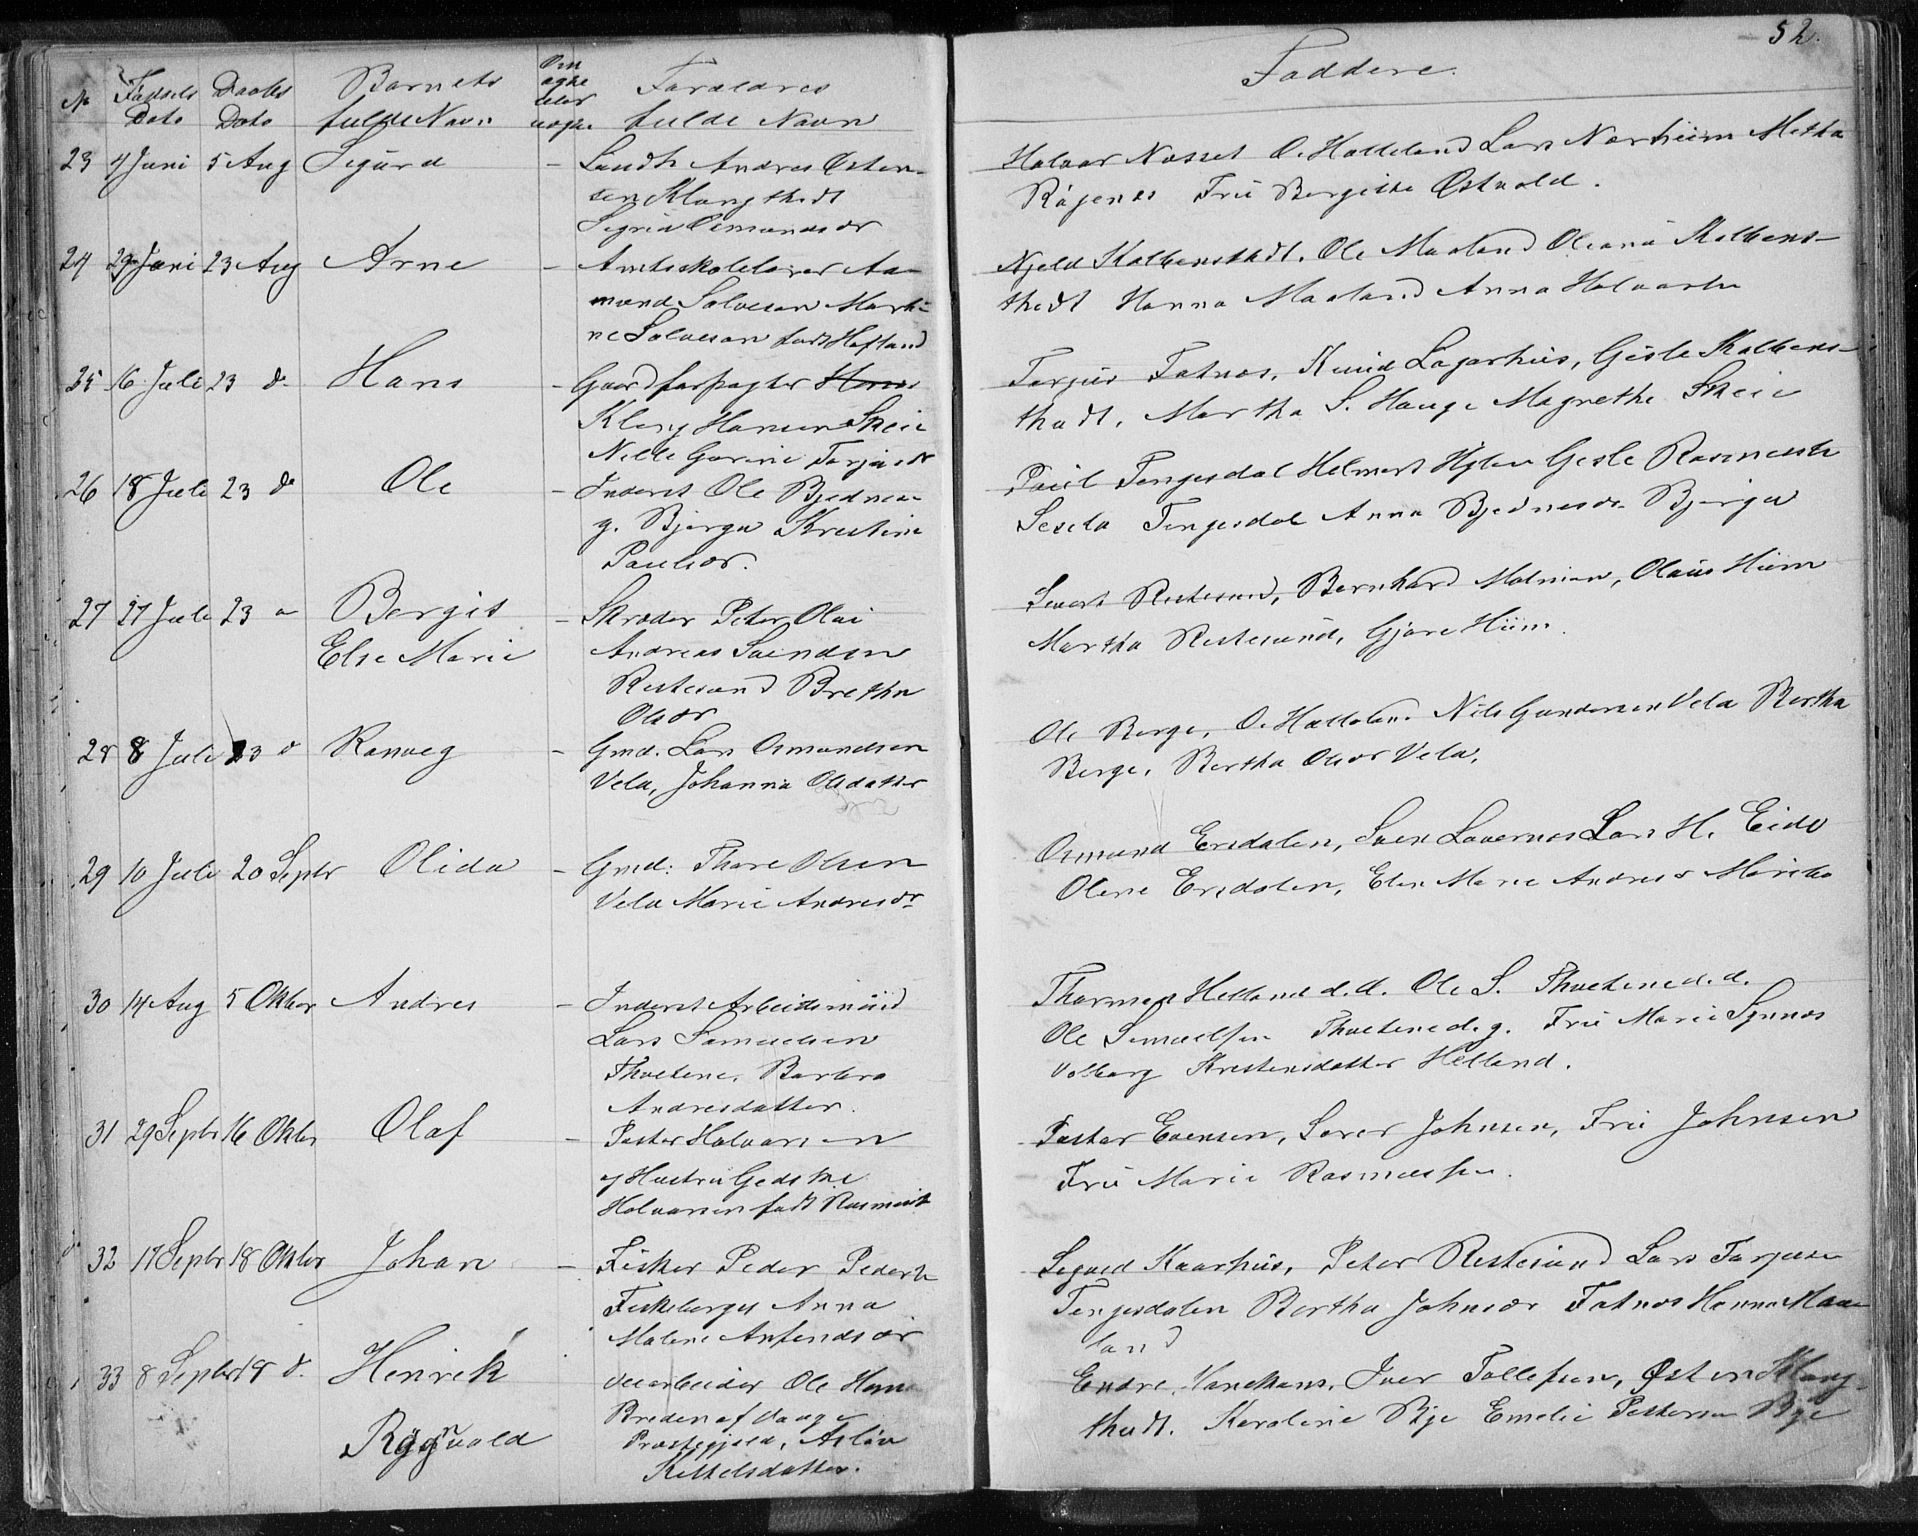 52.
No Fødsels Dato Daabs Dato Barnets fulde Navn Om ægte eller uægte Forældres fulde Navn
Faddere.
23 4 Juni 5 Aug Sigurd - Landh Andres Østen-
sen Klungthvedt
Sigrid Osmundsdr
Halvor Næsset O. Halleland Lars Nærheim Metha
Røgenes Frü Bergithe Østvold.
24 29 Juni 23 Aug Arne - Amtsskolelærer Aa-
mund Salvesen Marthi-
ne Salvesen født Høfland
Njeld Kolbensthvedt. Ole Maaland Oleana Kolbens-
thvedt Hanna Maaland Anna Halvorsen
25 16 Juli 23 d. Hans - Gaardforpagter Hans
Klung Hansen Skeie
Nelle Gurine Torjusdr
Torjus Fatnes, Knud Lagarhüs, Gisle Kolbens-
thvedt. Martha S. Hauge Magrethe Skeie
26 18 Juli 23 do Ole - Inderst Ole Bjednesen
g. Bjerga Kristine
Paulsdr.
Paül Tengesdal Helmert Hylen Gisle Rasmussen
Sesela Tengesdal Anna Bjednesdr Bjerga
27 27 Juli 23 Bergit
Else Marie - Skræder Peter Olai
Andreas Svendsen
Restesund Brethe
Olsdr
Sivert Restesund, Bernhard Malmin, Olaüs Hüm
Martha Restesünd, Gjøre Hüm.
28 8 Juli 23 d Ranveg - Gmd. Lars Osmundsen
Vela, Johanna Olsdatter
Ole Berge, O. Halleland Nils Gundersen Vela Bertha
Berge, Bertha Olsdr Vela.
29 10 Juli 20 Septr Olida - Gmd: Thore Olsen
Vela Marie Andresdr
Osmund Ersdalen, Sven Lavernes Lars H. Eide
Olene Ersdalen, Elen Marie Andresdr
30 14 Aug 5 Oktbr Andres - Inderst Arbeidsmand
Lars Samuelsen
Thvetene. Barbra
Andresdatter.
Thormod Helland d.d. Ole S. Thvetene d.d.
Ole Samuelsen Thvetene d.g. Frü Marie Synnes
Volborg Kristensdatter Helland.
31 29 Septr 16 Oktbr Olaf - Pastor Halvorsen
og Hustru Gedske
Halvorsen født Rasmus
Pastor Evensen, Lærer Johnsen, Frü Johnsen
Frü Marie Rasmussen.
32 17 Septr 18 Oktbr Johan - Fisker Peder Peders
Fiskeberget Anna
Malene Anfendsdr
Sigved Kaarhüs, Peter Restesünd Lars Torjusen
Tengesdalen Bertha Johnsdr Fatnes Hanna Maa-
land
33 8 Septbr 18 d. Henrik
Røgnvald Veiarbeider Ole Hans
Breden af Vaage
Præstegjeld, Aslöu
Kittelsdatter.
Endre Vandkans, Iver Tollefsen, Østen Klung-
thvedt. Karoline Bye Emelie Pettersen Bye